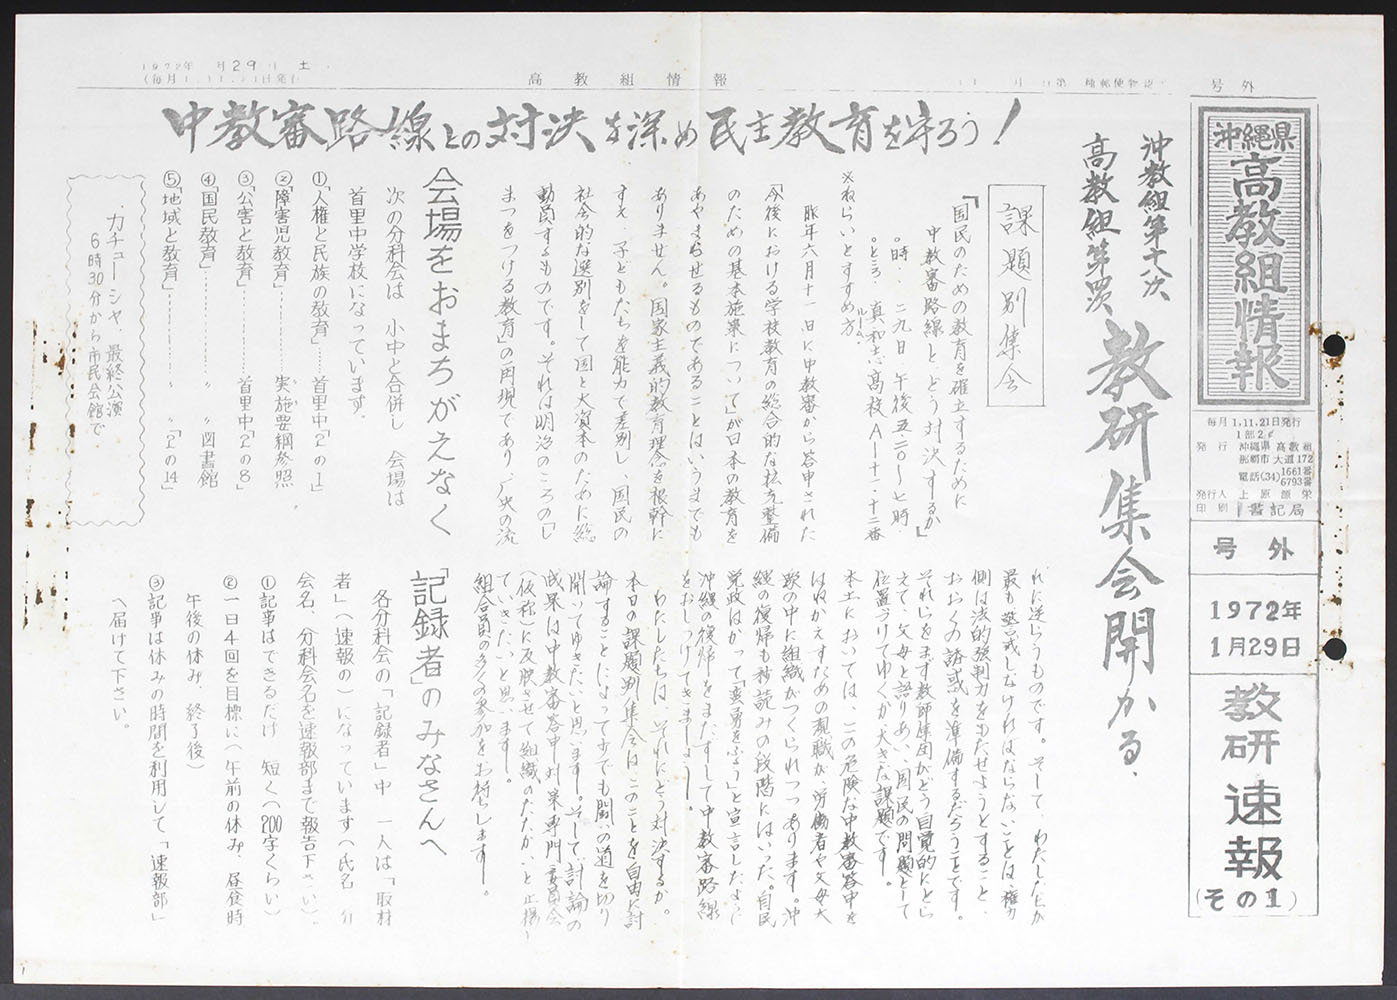 号外
高教組情報
1972年 月29日 土
(毎月1.11.21日発行
沖縄県
高教組情報
毎月1,11,21日発行
1部2¢
発行 沖縄県高教組
那覇市大道172
電話(34)1661番
6793番
発行人 上原源栄
印刷 書記局
号外
1972年
1月29日
教研
速報
(その1)
中教審路線との対決を深め民主教育を守ろう!
沖教組第十八次
高教組第四次
教研集会開かる、
課題別集会
「国民のための教育を確立するために
中教審路線と、どう対決するか」
。時. 二九日 午後五:三〇~七時
。ところ. 真和志高校 A-十一・十二番
ルーム
※ねらいとすすめ方
昨年六月十一日に中教審から答申された
「今後における学校教育の総合的な拡充整備
のための基本施策について」が日本の教育を
あやまらせるものであることはいうまでも
ありません。国家主義的教育理念を根幹に
すえ、子どもたちを能力で差別し、国民の
社会的な選別をして国と大資本のために総
動員するものです。それは明治のころの「し
まつをつける教育」の再現であり、歴史の流
れに逆らうものです。そして、わたしたちが
最も警戒しなければならないことは権力
側は法的強制力をもたせようとすること、
おおくの誘惑を準備するだろうことです。
それらをまず教師集団がどう自覚的にとら
えて、父母と語りあい、国民の問題として
位置づけてゆくか、大きな課題です。
本土においては、この危険な中教審答申を
はねかえすための現職が、労働者や父母大
衆の中に組織がつくられつつあります。沖
縄の復帰も秒読みの段階にはいった。自民
党政はかって「蛮勇をふるう」と宣言したように
沖縄の復帰をまたずして中教審路線
をおしつけてきましょう。
わたしたちは、それにどう対決するか。
本日の課題別集会は、このことを自由に討
論することによって少でも闘いの道を切り
開いてゆきたいと思います。そして、討論の
成果は中教審答申対策専門委員会
(仮称)に反映させて組織のたたかいと止揚し
ていきたいと思います。
組合員の多くの参加をお待ちします。
会場をおまちがえなく
次の分科会は 小中と合併し 会場は
首里中学校になっています。
①「人権と民族の教育」……首里中「2」の1」
②「障害児教育」………実施要綱参照
③「公害と教育」………首里中「2の8」
④「国民教育」………〃 図書館
⑤「地域と教育」………〃「2の14」
.カチューシャ、最終公演
6時30分から市民会館で
「記録者」のみなさんへ
各分科会の「記録者」中 一人は「取材
者」(速報の)になっています(氏名 介
会名、(分科会名を速報部まで報告下さい)、
①記事はできるだけ 短く(200字くらい)
②一日4回を目標に(午前の休み、昼食時
午後の休み、終了後)
③記事は休みの時間を利用して「速報部」
へ届けて下さい。